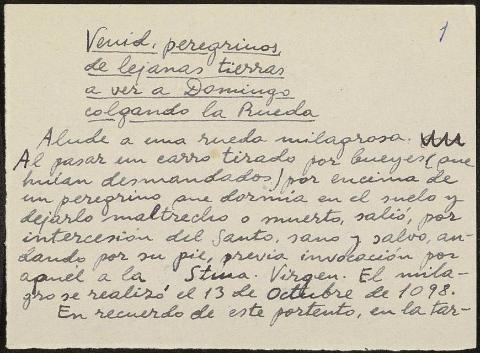 1
Venid, peregrinos,
de lejanas tierras
a ver a Domingo
colgando la Rueda
Alude a una rueda milagrosa.
Al pasar un carro tirado por bueyes (que
huían desmandados) por encima de
un peregrino que dormía en el suelo y
dejarlo maltrecho o muerto, salió, por
intercesión del Santo, sano y salvo, an-
dando por su pie, previa invocación por
aquel a la Stma. Virgen. El mila-
gro se realizó el 13 de Octubre de 1098.
En recuerdo de este portento, en la tar-